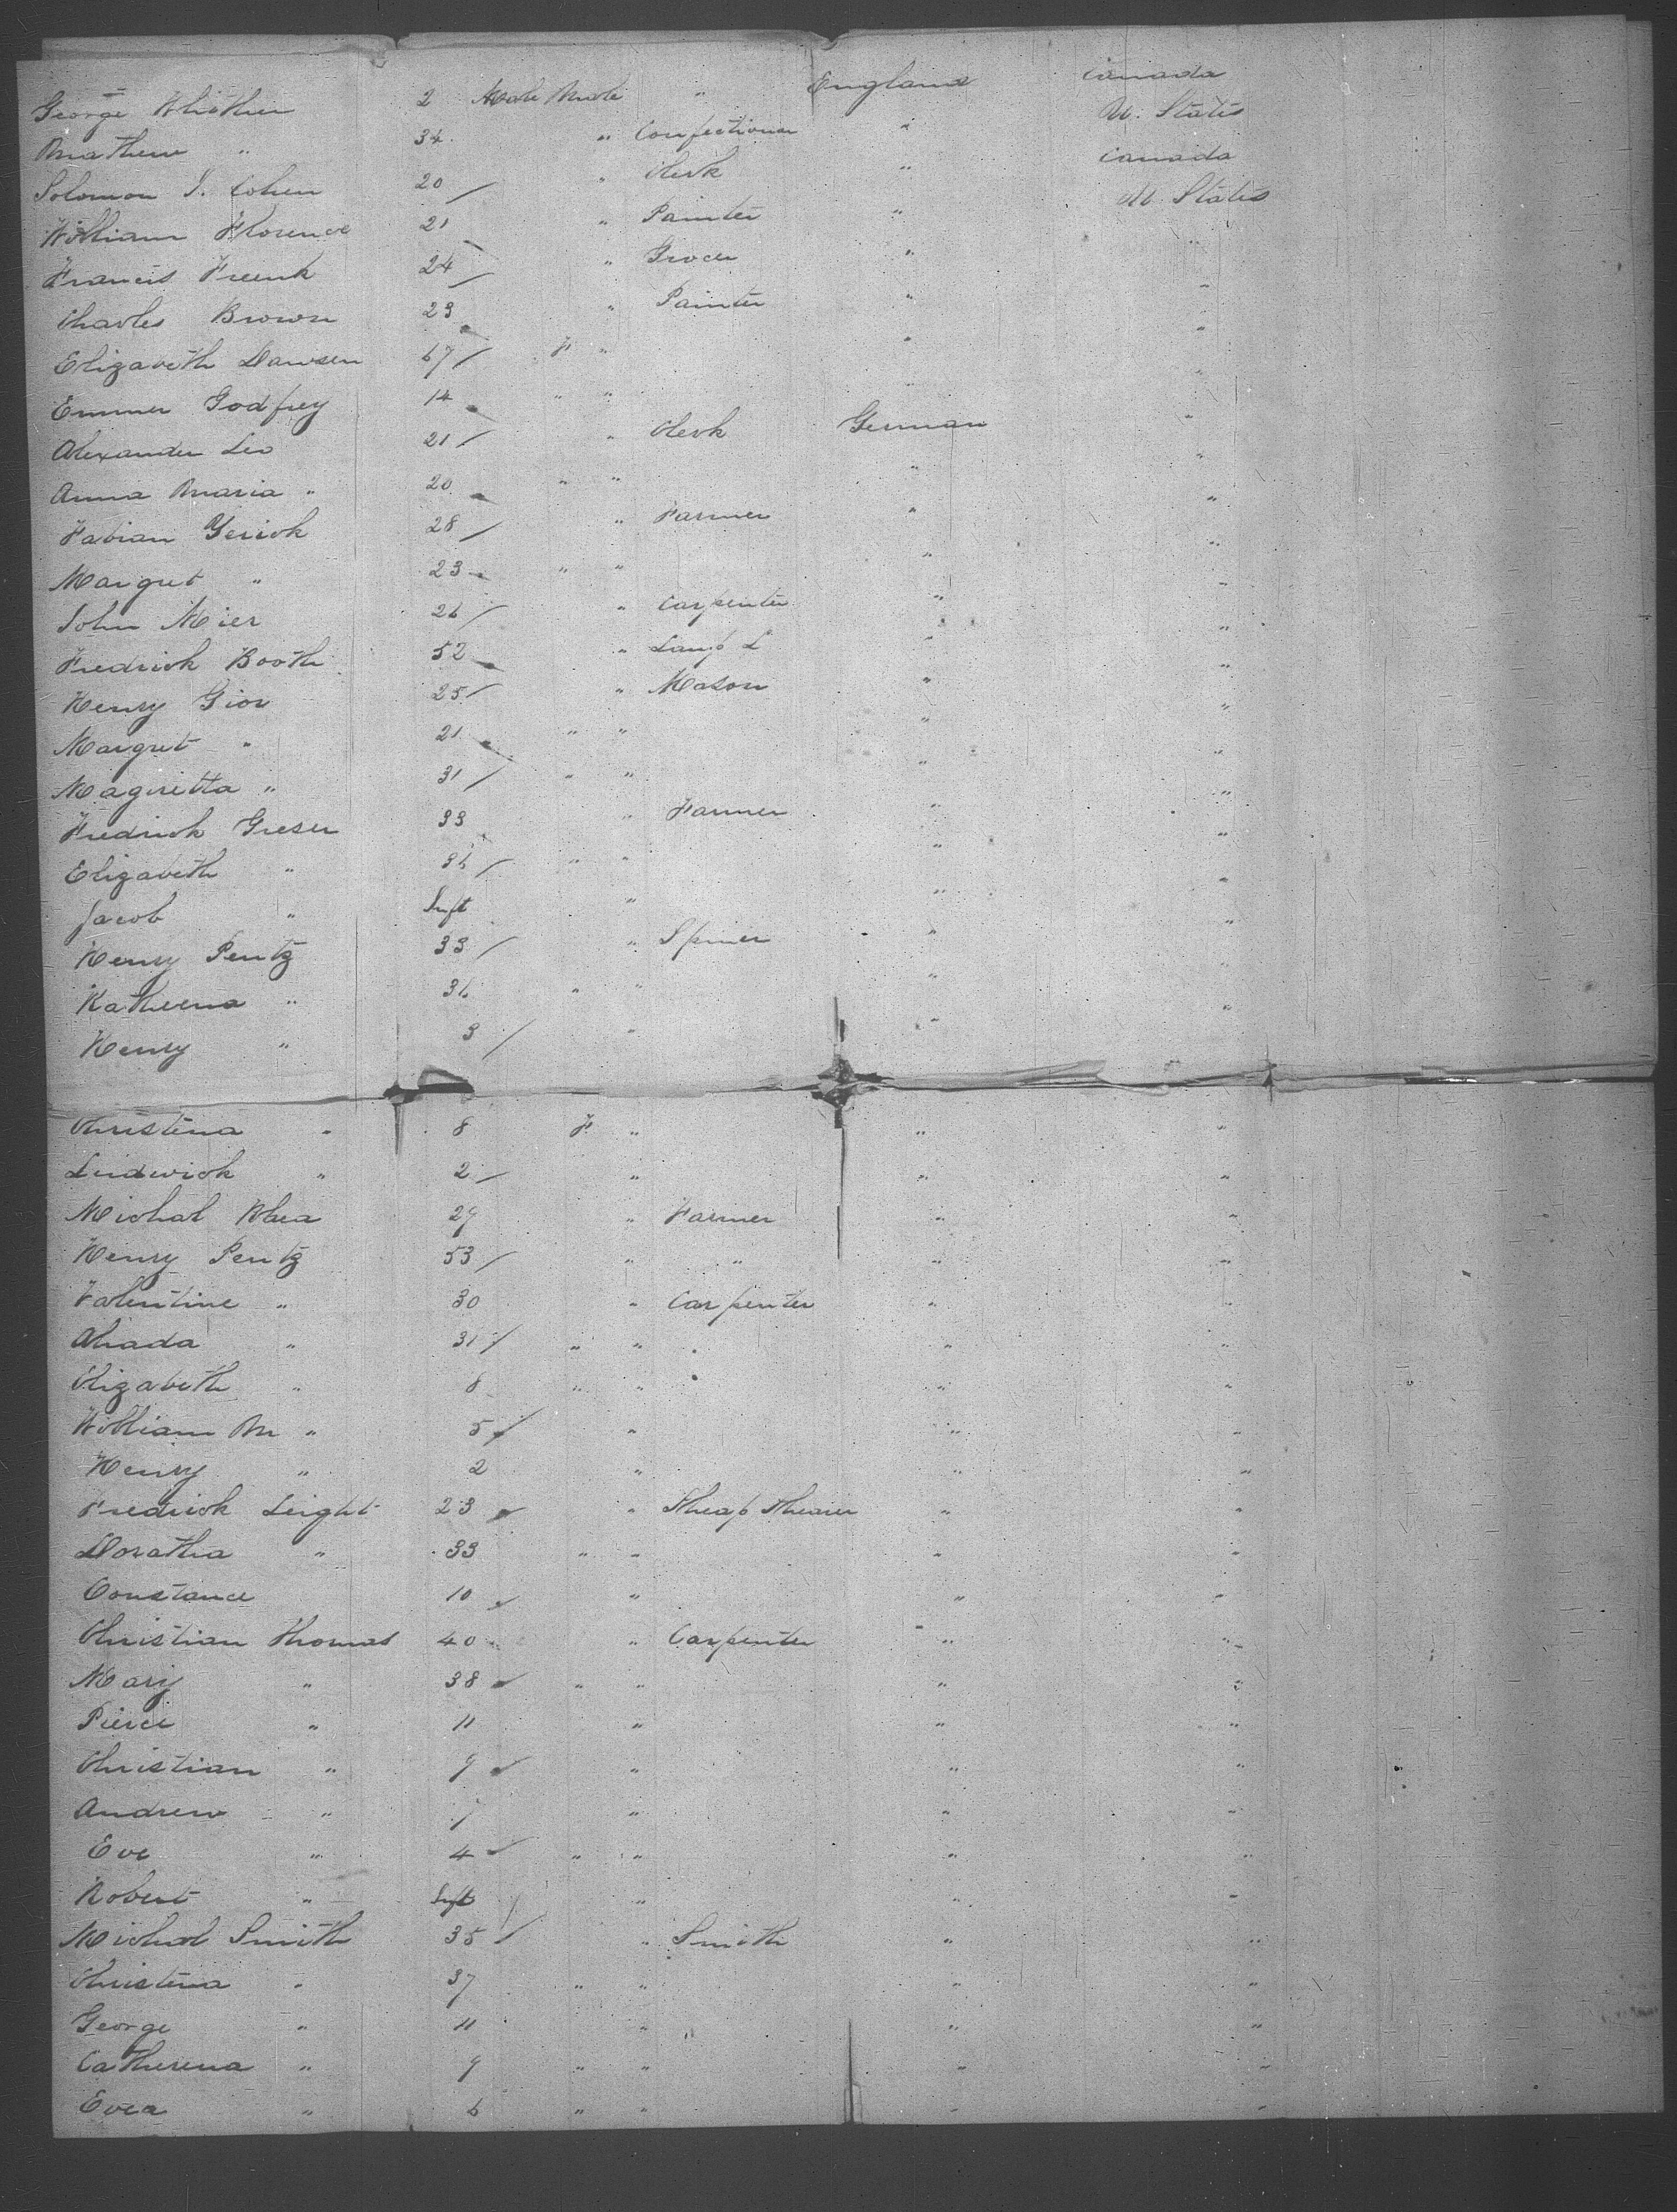 George Whithier 2 Male Male " England Canada
Mathew " 34 " Confectioner " U. States
Solomon I. Cohen 20 " Clerk " Canada
William Florence 21 " Painter " U. States
Francis French 24 " Grocer " "
Charles Brown 23 " Painter " "
Elizabeth Dawsen 67 F " " "
Emmer Godfrey 14 " " " "
Alexander Leo 21 " Clerk German "
Anna Maria " 20 " " " "
Fabian Yerick 28 " Farmer " "
Margret " 23 " " " "
John Meier 26 " Carpenter " "
Fredrick Booth 52 " "
Henry Gior 25 " Mason " "
Margret " 21 " " " "
Magretta " 31 " " " "
Fredrick Greser 33 " Farmer " "
Elizabeth " 36 " " " "
Jacob " Inft " " "
Henry Pentz 33 " Spiner " "
Katherena " 36 " " " "
Henry " 3 " " "
Christena " 8 F " " "
Ludwick " 2 " " "
Michal 29 " Farmer " "
Henry Pentz 53 " " " "
Valentine " 30 " Carpenter " "
" 31 " " " "
Elizabeth " 8 " " " "
William M " 5 " " "
Henry " 2 " " "
Fredrick Leight 23 " Sheap Shearer " "
Doratha " 33 " " " "
Constance 10 " " "
Christian Thomas 40 " Carpenter " "
Mary " 38 " " " "
Pierce " 11 " " "
Christian " 9 " " "
Andrew " 7 " " "
Eve " 4 " " " "
Robert " Inft " " "
Michal Smith 35 " Smith " "
Christena " 37 " " " "
George " 11 " " "
Catherena " 9 " " " "
Evea " 6 " " " "